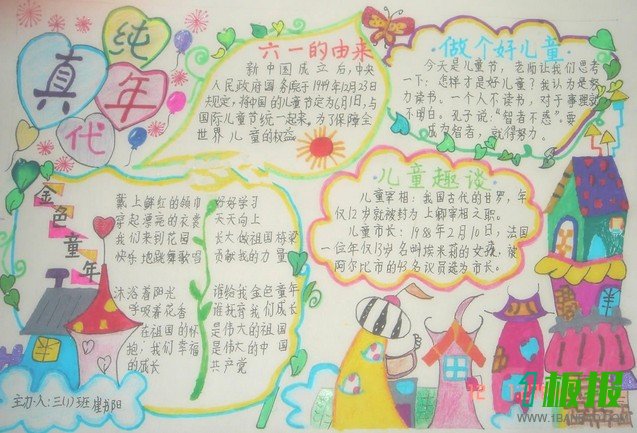 纯真年代
六一的由来
新中国成立后,中央
人民政府国务院于1949年12月23日
规定,将中国的儿童节定为6月1日,与
国际儿童节统一起来。为了保障全
世界儿童的权益。
做个好儿童
今天是儿童节,老师让我们思考
一下:怎样才是好儿童?我认为是努
力读书。一个人不读书,对于事理就
不明白。孔子说:“智者不惑”。要
成为智者,就得努力。
儿童趣谈
儿童宰相:我国古代的甘罗,年
仅12岁就被封为上卿宰相之职。
儿童市长:1988年2月10日,法国
一位年仅13岁名叫埃米莉的女孩,被
阿尔比市的43名议员选为市长。
金色童年
戴上鲜红的领巾
穿起漂亮的衣裳
我们来到花园
快乐地跳舞歌唱
沐浴着阳光
呼吸着花香
在祖国的怀
抱,我们幸福
的成长
好好学习
天天向上
长大做祖国栋梁
贡献我的力量
谁给我金色童年
谁抚育我们成长
是伟大的祖国
是伟大的中国
共产党
主力人:三(1)班
板报